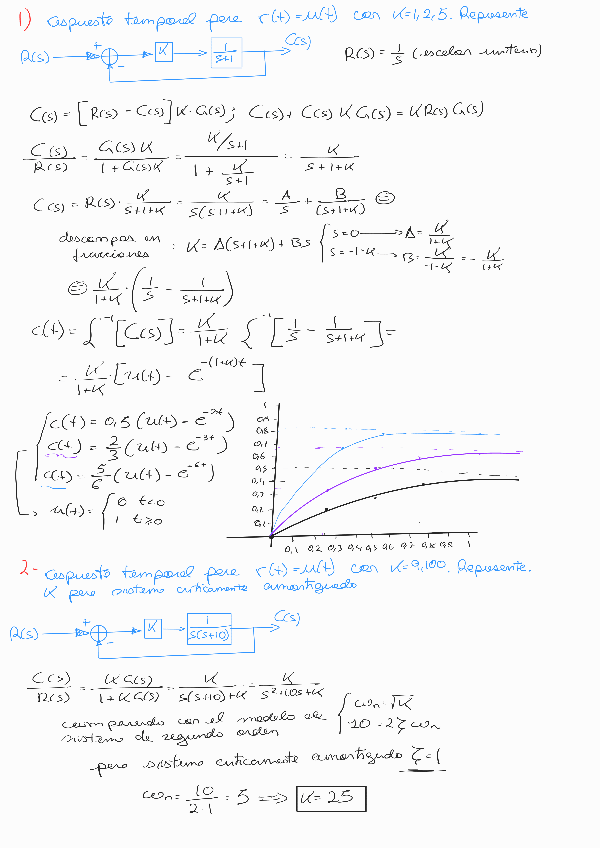 1) respuesta temporal para r(t)=u(t) con K=1,2,5. Represente
R(s) + - K 1/(s+1) C(s) R(s) = 1/s (escalon unitario)
C(s) = [R(s) - C(s)] K·G(s); C(s) + C(s) K G(s) = K R(s) G(s)
C(s)/R(s) = G(s)K/(1+G(s)K) = (K/s+1)/(1 + K/(s+1)) = K/(s+1+K)
C(s) = R(s)· K/(s+1+K) = K/(s(s+1+K)) = A/s + B/(s+1+K) =
descompos. en fracciones : K = A(s+1+K) + B s { s=0 → A = K/(1+K)
s=-1-K → B = K/(-1-K) = - K/(1+K)
= K/(1+K) · (1/s - 1/(s+1+K))
c(t) = L⁻¹[C(s)] = K/(1+K) L⁻¹[1/s - 1/(s+1+K)] =
= K/(1+K) · [u(t) - e^-(1+K)t]
c(t) = 0,5 (u(t) - e^-2t)
c(t) = 2/3 (u(t) - e^-3t)
c(t) = 5/6 (u(t) - e^-6t)
u(t) = { 0 t<0
1 t≥0
1
0,9
0,8
0,7
0,6
0,5
0,4
0,3
0,2
0,1
0,1 0,2 0,3 0,4 0,5 0,6 0,7 0,8 0,9 1
2- respuesta temporal para r(t)=u(t) con K=9,100. Represente.
K para sistema criticamente amortiguado
R(s) + - K 1/(s(s+10)) C(s)
C(s)/R(s) = K G(s)/(1+K G(s)) = K/(s(s+10)+K) = K/(s²+10s+K)
comparando con el modelo de
sistema de segundo orden
{ ωn = √K
10 = 2ζωn
para sistema criticamente amortiguado ζ=1
ωn = 10/(2·1) = 5 ⟹ K = 25